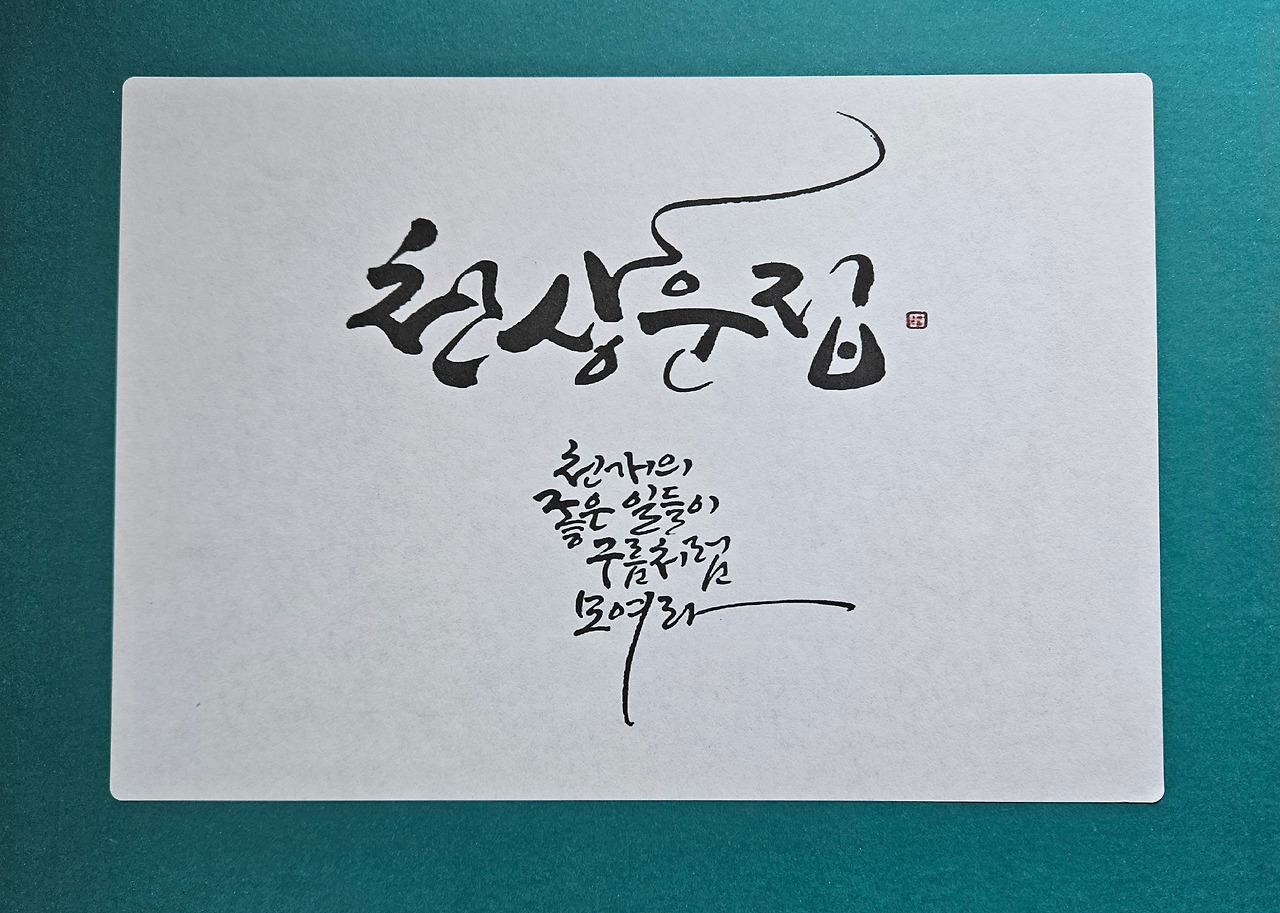 천상운집
천개의
좋은 일들이
구름처럼
모여라